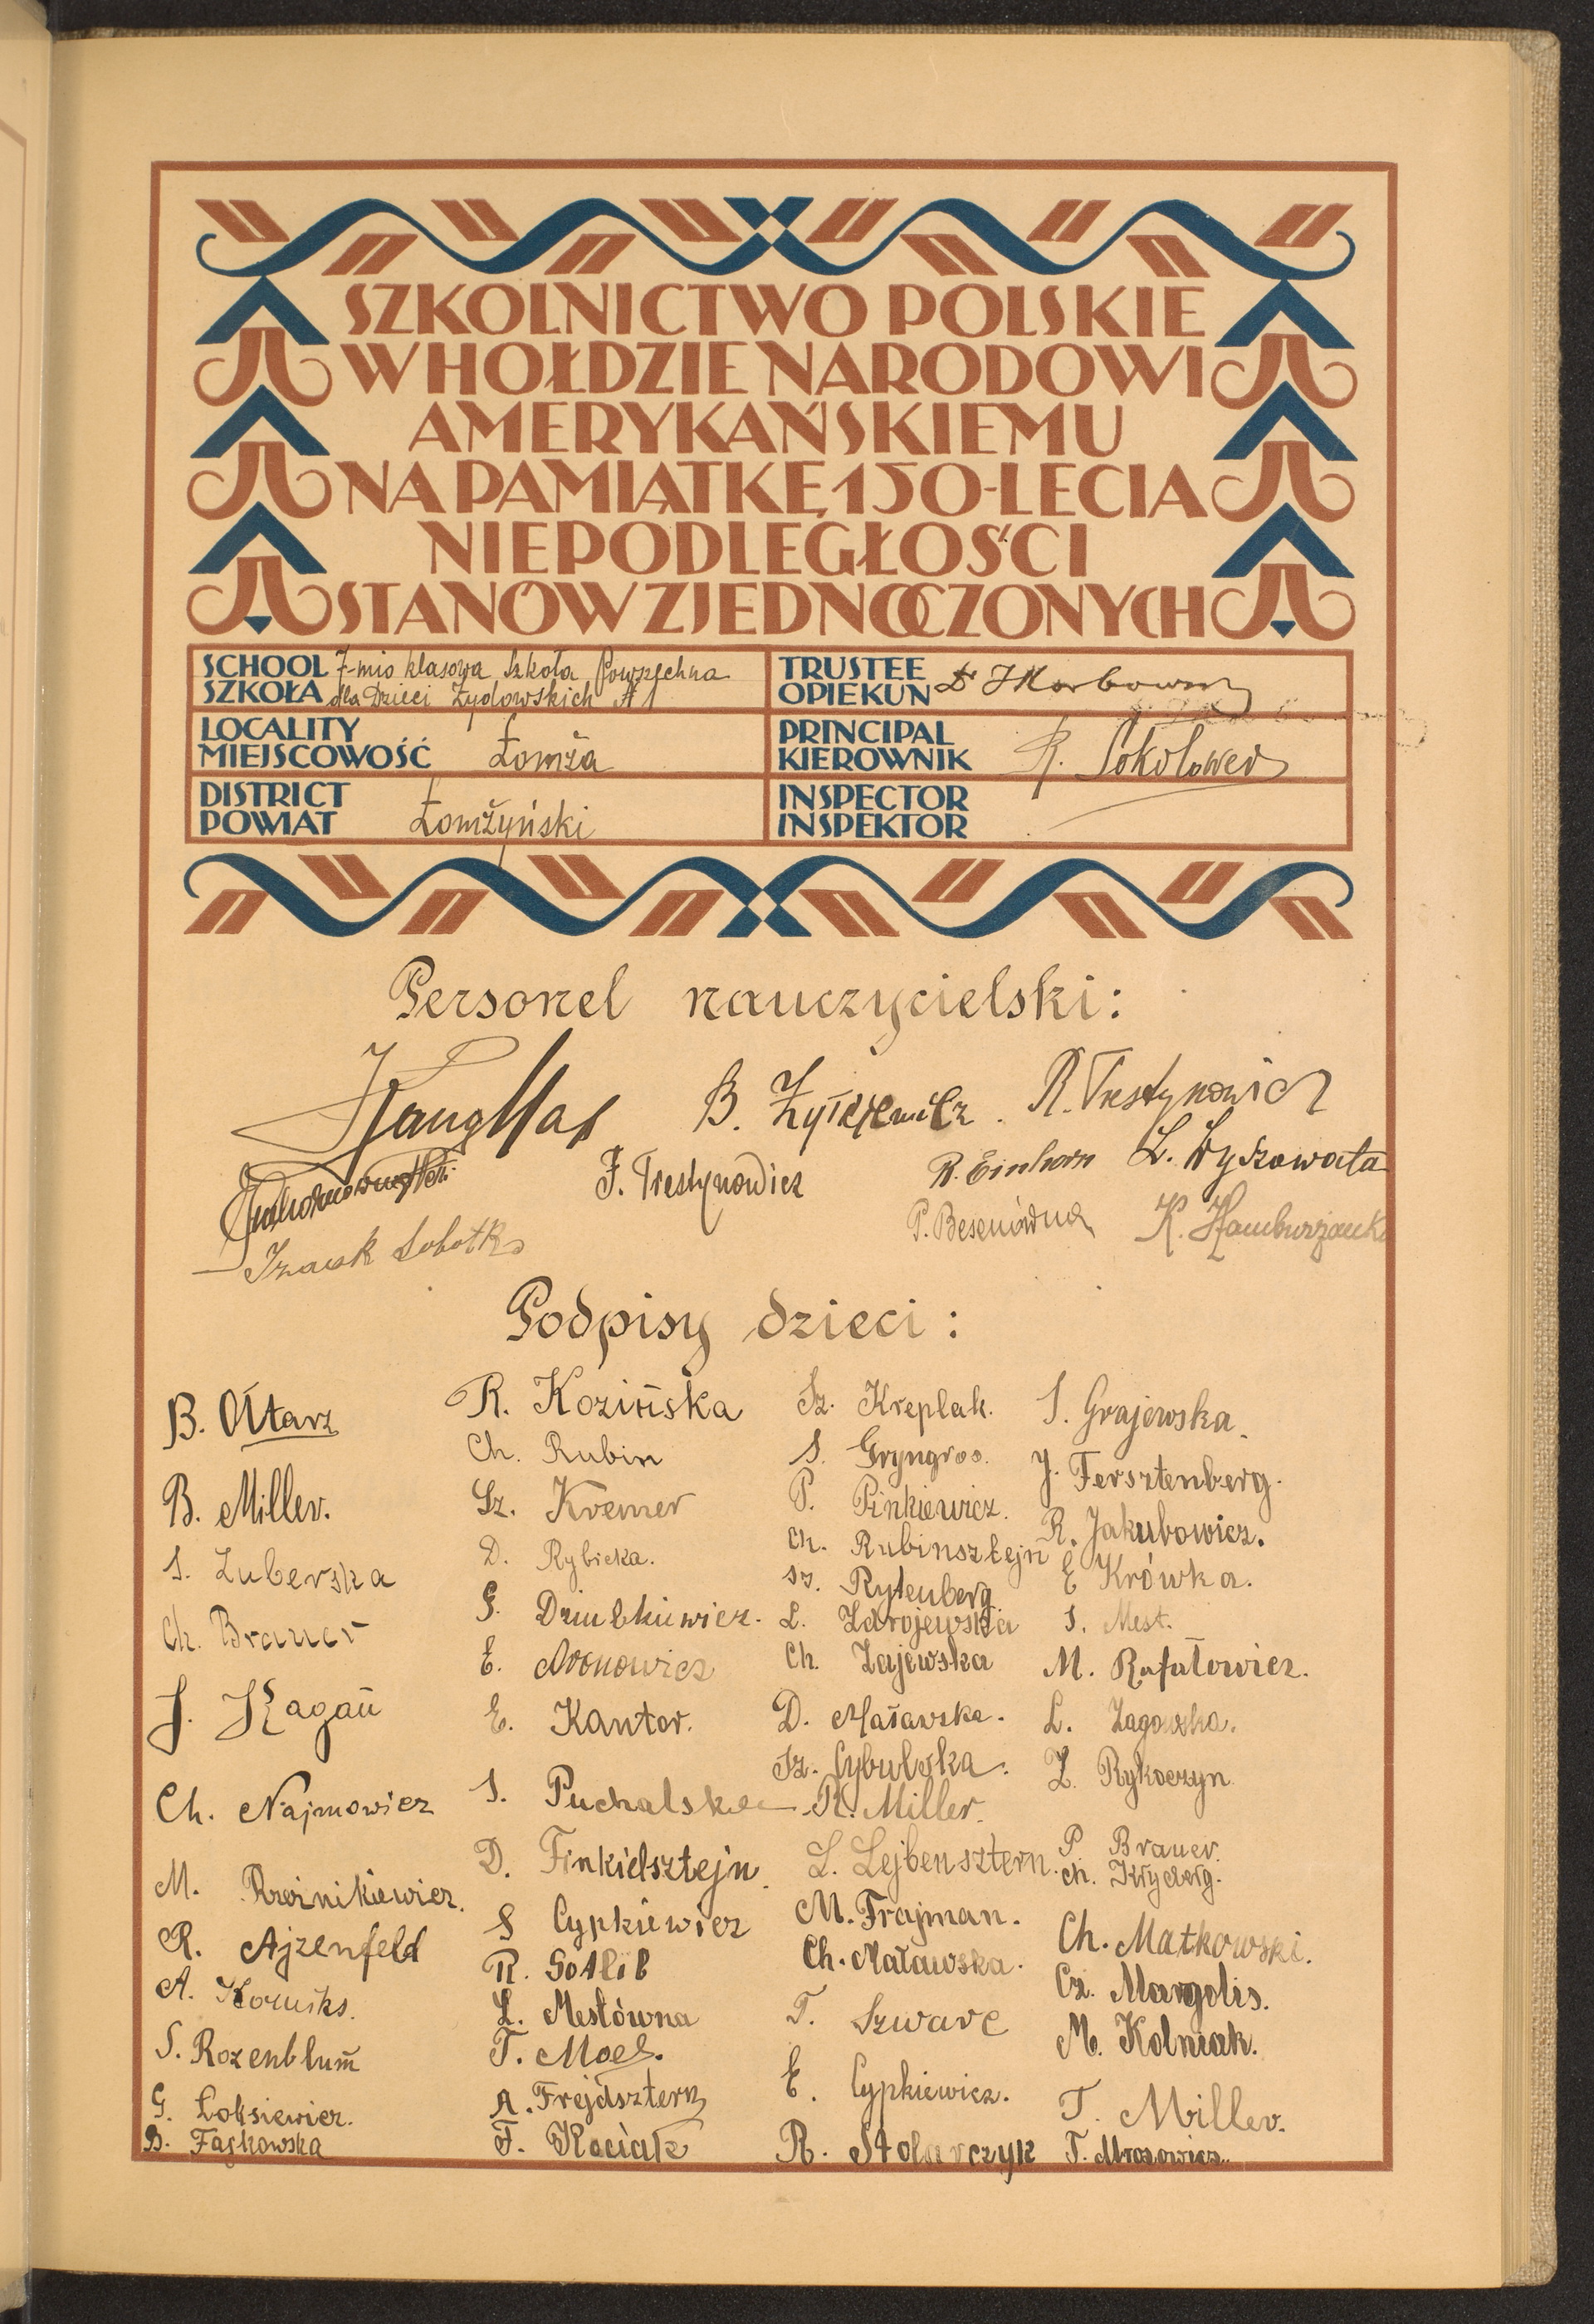 SZKOLNICTWO POLSKIE
W HOŁDZIE NARODOWI
AMERYKAŃSKIEMU
NA PAMIĄTKĘ 150-LECIA
NIEPODLEGŁOŚCI
STANÓW ZJEDNOCZONYCH
SCHOOL 7-mio klasowa Szkoła Powszechna
SZKOŁA dla Dzieci Żydowskich № 1
TRUSTEE
OPIEKUN Dr
LOCALITY
MIEJSCOWOŚĆ Łomża
PRINCIPAL
KIEROWNIK R. Sokołower
DISTRICT
POWIAT Łomżyński
INSPECTOR
INSPEKTOR
Personel nauczycielski:
B.
R. Trestynowicz
J. Trestynowicz
R. Einhorn
L. Wyszowata
Izaak Sobotko
P. Besenówna
K.
Podpisy dzieci:
B. Ołtarz
B. Miller.
S. Luberska
Ch. Brauer
J. Kagan
Ch. Najmowicz
M. Rzeźnikiewicz.
R. Ajzenfeld
A.
S. Rozenblum
G. Łobsiewicz.
B. Fajkowska
R. Kozińska
Ch. Rubin
Sz. Kremer
D. Rybicka.
G. Dziubkiewicz.
E. Aronowicz
E. Kantor.
S. Puchalska
D. Finkielsztejn.
S Cypkiewicz
R. Gotlib
L. Mestówna
T. Moes.
A. Frejdsztern
F. Kociak
Sz. Kreplak.
S. Gryngros.
P. Pinkiewicz.
Ch. Rubinsztejn
Sz. Rytenberg
L. Zdrojewska
Ch. Zajewska
D. Maławska.
Sz. Cybulska.
R. Miller.
L. Lejbensztern.
M. Frajman.
Ch. Maławska.
T. Szwarc
E. Cypkiewicz.
R. Stolarczyk
S. Grajewska.
J. Fersztenberg.
R. Jakubowicz.
E Krówka.
S. Mest.
M. Rafałowicz.
L. Zagowska.
Z. Rykoczyn
P Brauer.
Ch.
Ch. Matkowski.
Cz. Margolis.
M. Kolniak.
T. Miller.
T. Mrozowicz.